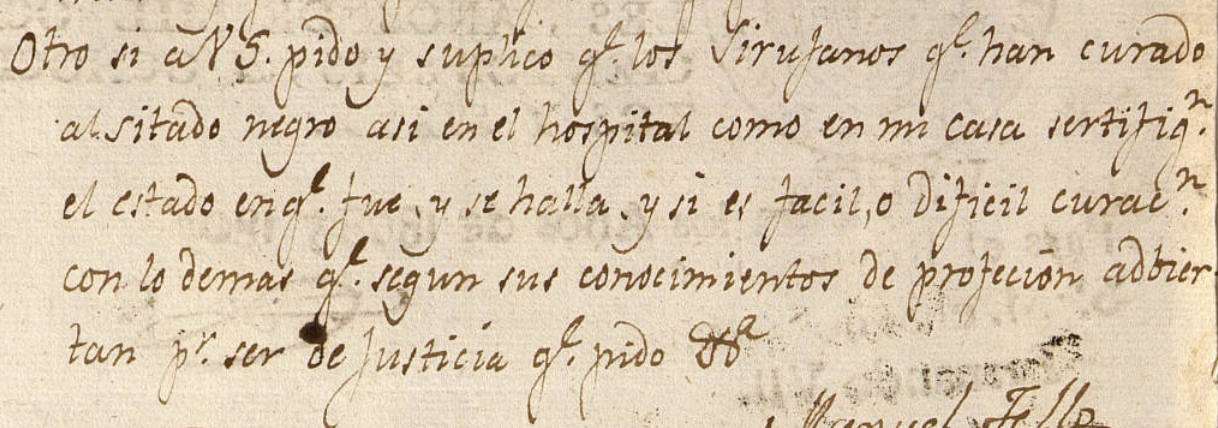 Otro si a V S. pido y suplico q.e los Sirujanos q.e han curado
al sitado negro asi en el hospital como en mi casa sertifiq.n
el estado en q.e fue, y se halla, y si es facil, o dificil curac.n
con lo demas q.e segun sus conocimientos de profeción adbier
tan p.r ser de Justicia q.e pido &.a
Manuel